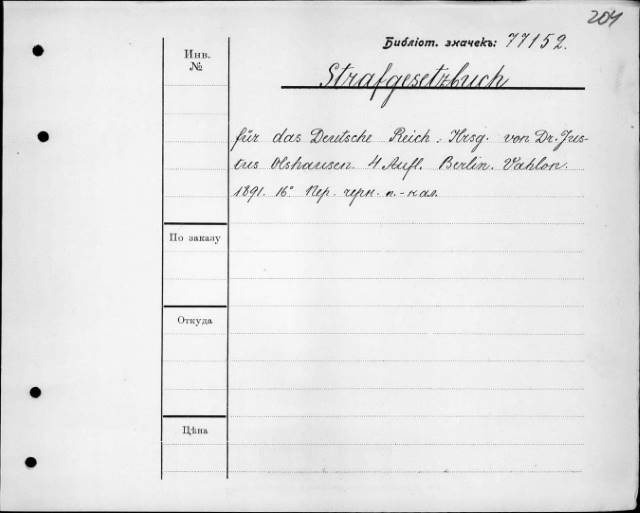 204
Библіот. значекъ: 77152.
Инв.
№
Strafgesetzbuch
für das Deutsche Reich. Hrsg. von Dr. Jus-
tus Olshausen. 4 Aufl. Berlin. Vahlen.
1891. 16° Пер. черн. п.-кал.
По заказу
Откуда
Цѣна